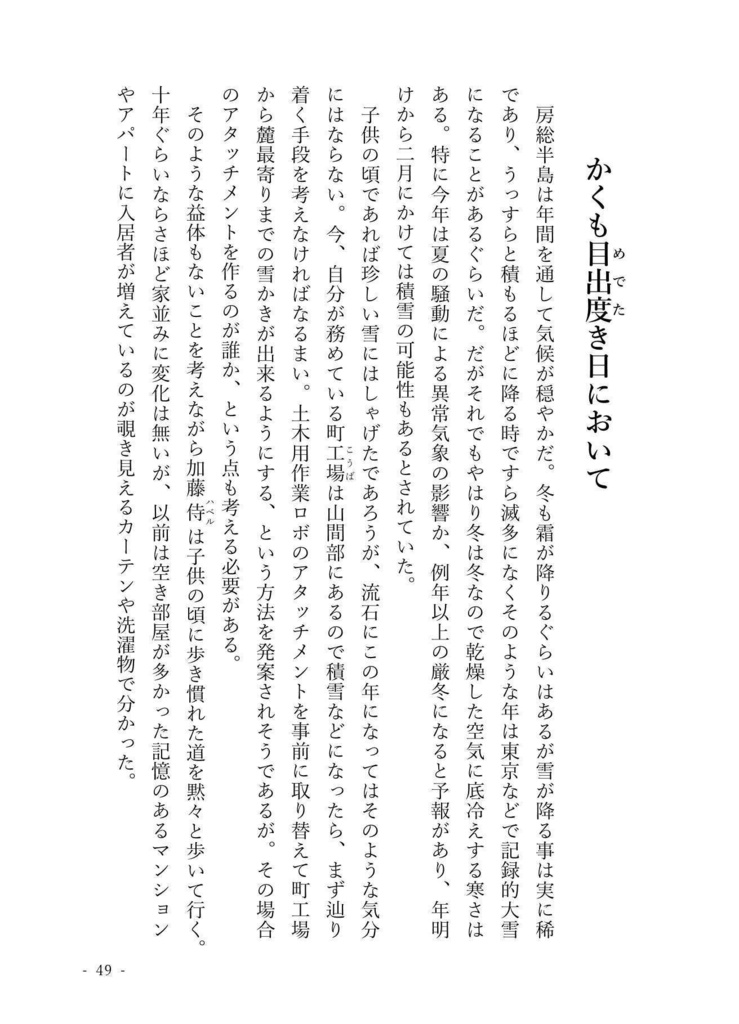 かくも目出度き日において
めでた
房総半島は年間を通して気候が穏やかだ。冬も霜が降りるぐらいはあるが雪が降る事は実に稀
であり、うっすらと積もるほどに降る時ですら滅多になくそのような年は東京などで記録的大雪
になることがあるぐらいだ。だがそれでもやはり冬は冬なので乾燥した空気に底冷えする寒さは
ある。特に今年は夏の騒動による異常気象の影響か、例年以上の厳冬になると予報があり、年明
けから二月にかけては積雪の可能性もあるとされていた。
子供の頃であれば珍しい雪にはしゃげたであろうが、流石にこの年になってはそのような気分
にはならない。今、自分が務めている町工場は山間部にあるので積雪などになったら、まず辿り
こうば
着く手段を考えなければなるまい。土木用作業ロボのアタッチメントを事前に取り替えて町工場
から麓最寄りまでの雪かきが出来るようにする、という方法を発案されそうであるが。その場合
のアタッチメントを作るのが誰か、という点も考える必要がある。
そのような益体もないことを考えながら加藤侍は子供の頃に歩き慣れた道を黙々と歩いて行く。
ハベル
十年ぐらいならさほど家並みに変化は無いが、以前は空き部屋が多かった記憶のあるマンション
やアパートに入居者が増えているのが覗き見えるカーテンや洗濯物で分かった。
- 49 -